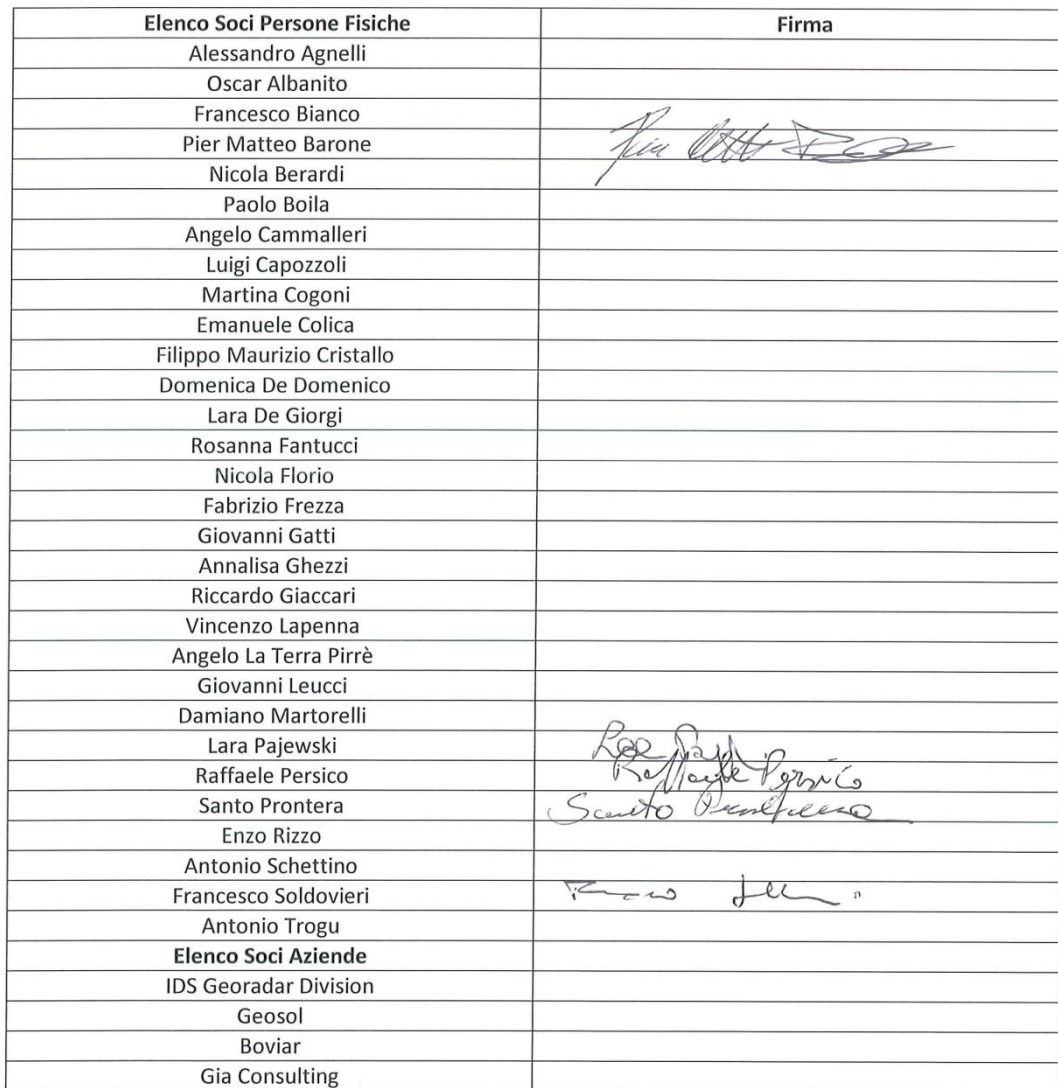 Elenco Soci Persone Fisiche Firma
Alessandro Agnelli
Oscar Albanito
Francesco Bianco
Pier Matteo Barone
Nicola Berardi
Paolo Boila
Angelo Cammalleri
Luigi Capozzoli
Martina Cogoni
Emanuele Colica
Filippo Maurizio Cristallo
Domenica De Domenico
Lara De Giorgi
Rosanna Fantucci
Nicola Florio
Fabrizio Frezza
Giovanni Gatti
Annalisa Ghezzi
Riccardo Giaccari
Vincenzo Lapenna
Angelo La Terra Pirrè
Giovanni Leucci
Damiano Martorelli
Lara Pajewski
Raffaele Persico Raffaele Persico
Santo Prontera Santo
Enzo Rizzo
Antonio Schettino
Francesco Soldovieri
Antonio Trogu
Elenco Soci Aziende
IDS Georadar Division
Geosol
Boviar
Gia Consulting